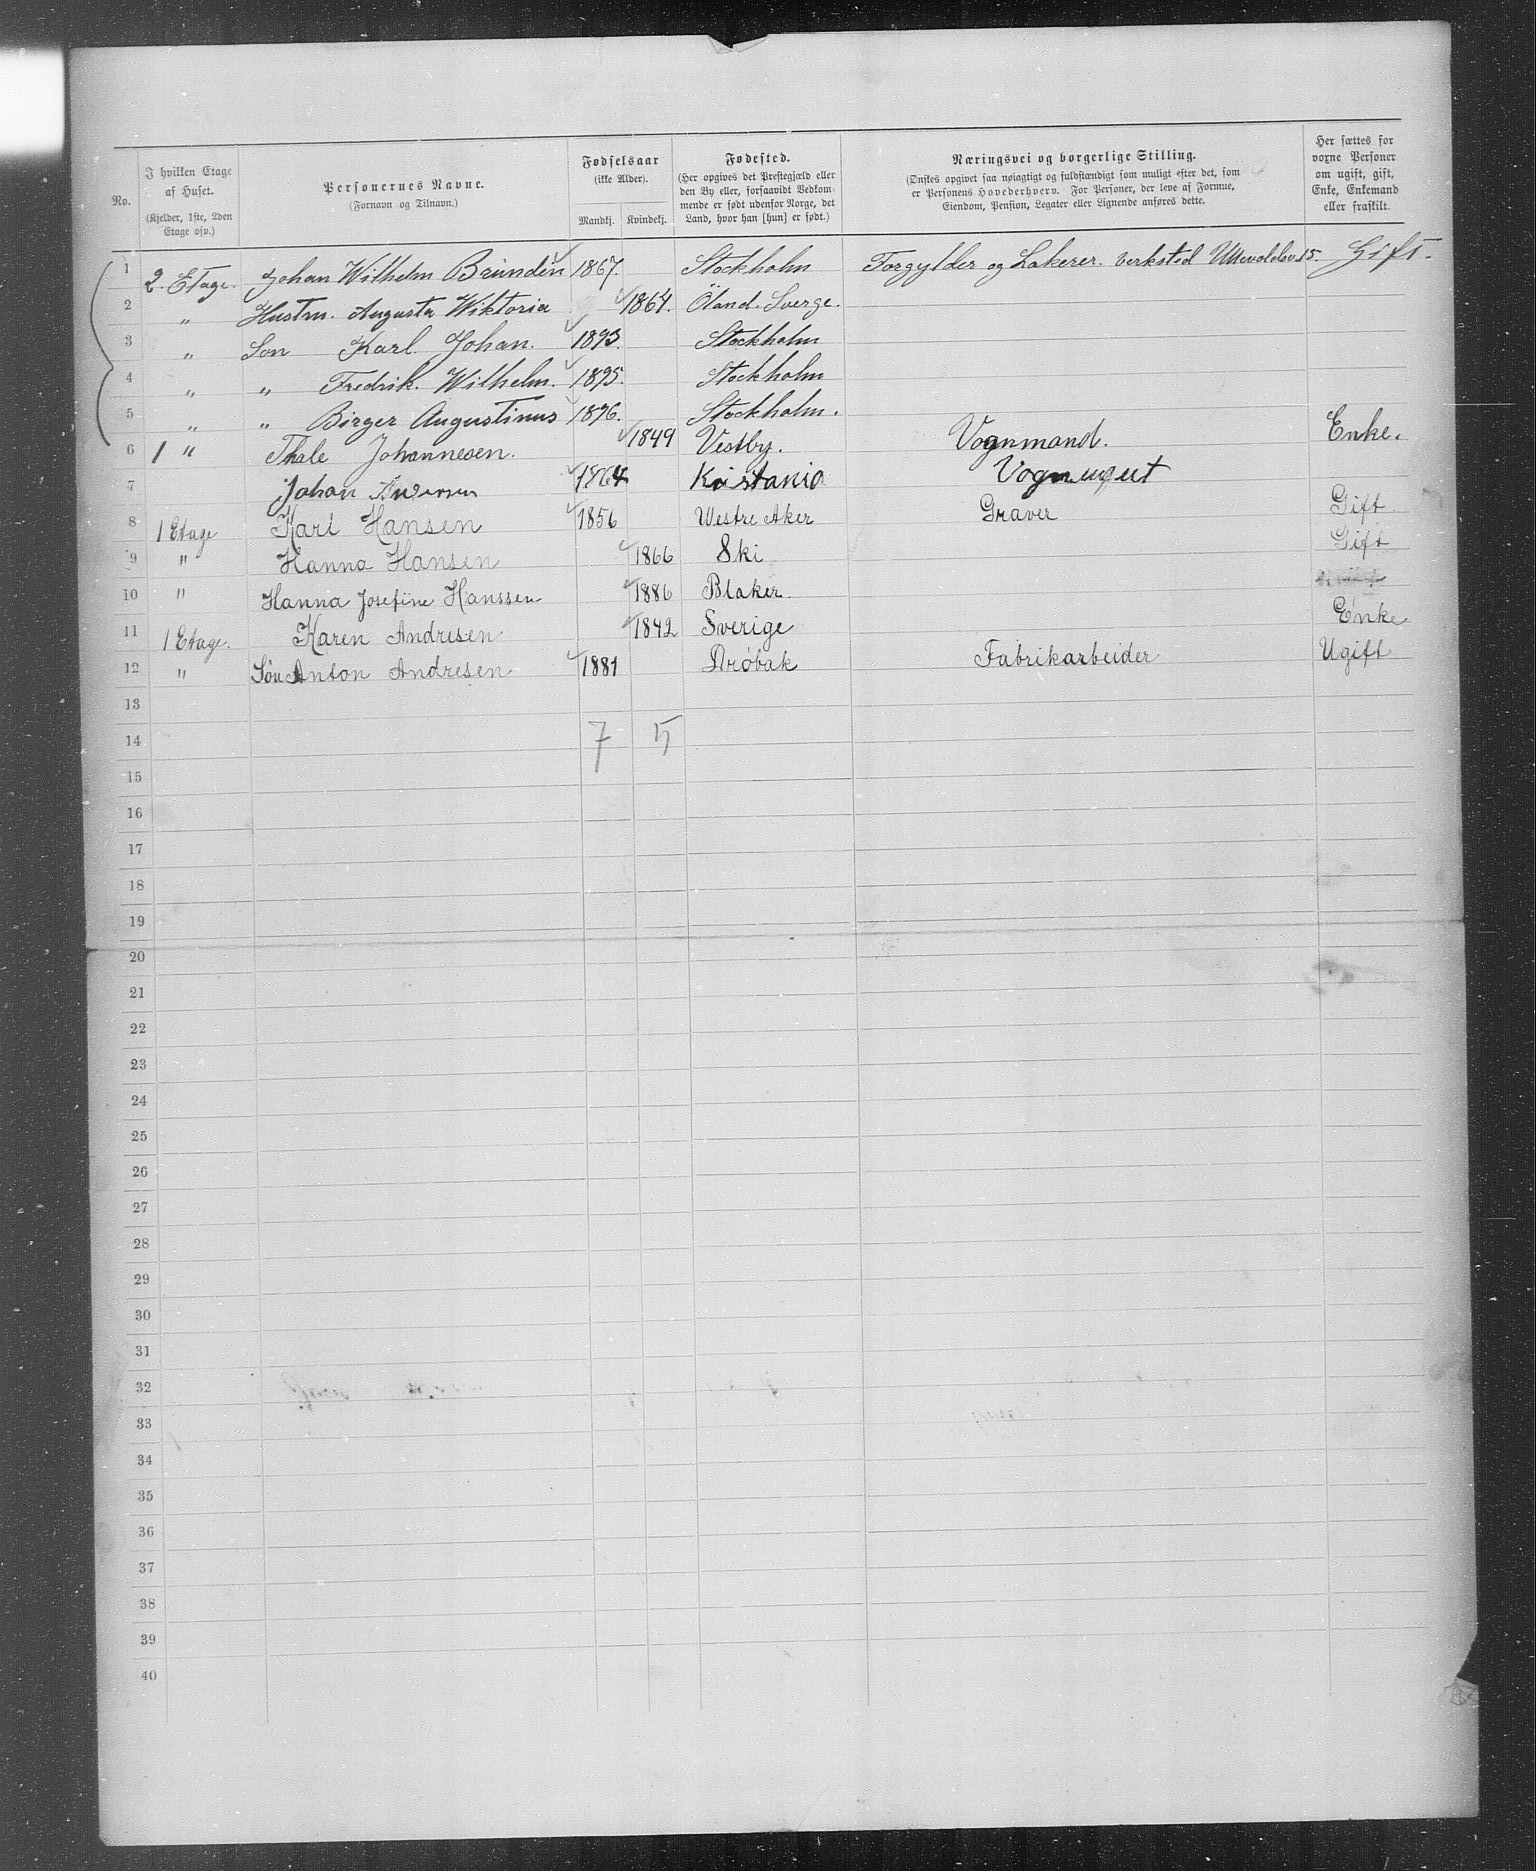 No.
I hvilken Etage af Huset.
(Kjelder, 1ste, 2den Etage osv.)
Personernes Navne.
(Fornavn og Tilnavn.)
Fødselsaar
(ikke Alder).
Mandkj. Kvindekj.
Fødested.
(Her opgives det Prestegjæld eller den By eller, forsaavidt Vedkommende er født udenfor Norge, det Land, hvor han [hun] er født.)
Næringsvei og borgerlige Stilling.
(Ønskes opgivet saa nøiagtigt og fuldstændigt som muligt efter det, som er Personens Hovederhverv. For Personer, der leve af Formue, Eiendom, Pension, Legater eller Lignende anføres dette.
Her sættes for voxne Personer om ugift, gift, Enke, Enkemand eller fraskilt.
1 2. Etage. Johan Wilhelm Brundin 1867. Stockholm Forgylder og Lakerer. Verksted Ullevoldsv 15. Gift.
2 " Hustru. Augusta Wiktoria 1864. Öland. Sverge.
3 " Son Karl Johan. 1893. Stockholm
4 " " Fredrik. Wilhelm. 1895. Stockholm
5 " " Birger Augustinus 1896. Stockholm.
6 1 " Thale Johannesen. 1849 Vestby. Vognmand. Enke.
7 Johan 1864 Kristania
8 1 Etage Karl Hansen 1856 Westre Aker Graver Gift
9 " Hanna Hansen 1866 Ski Gift
10 " Hanna Josefine Hanssen 1886 Blaker.
11 1 Etage. Karen Andresen 1842 Sverige Enke
12 " Søn Anton Andresen 1881 Drøbak Fabrikarbeider Ugift
13
14 7 5
15
16
17
18
19
20
21
22
23
24
25
26
27
28
29
30
31
32
33
34
35
36
37
38
39
40